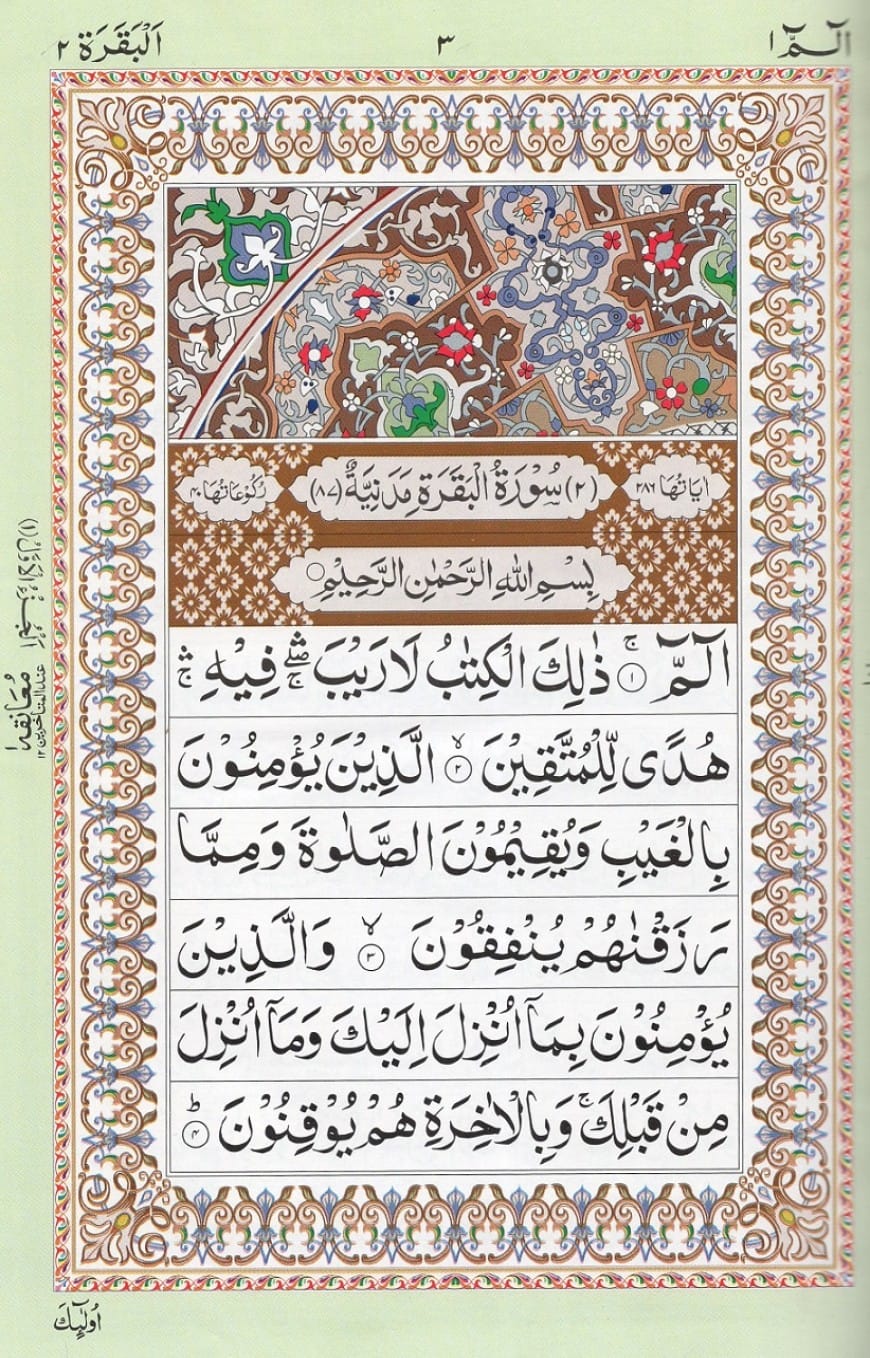 الٓمّٓ ١
٣
اَلْبَقَرَة ٢
اٰیَاتُهَا ٢٨٦
(٢) سُوْرَةُ الْبَقَرَةِ مَدَنِيَّةٌ (٨٧)
رُكُوْعَاتُهَا ٤٠
بِسْمِ اللّٰهِ الرَّحْمٰنِ الرَّحِيْمِ
الٓمّٓ ۚ ١ ذٰلِكَ الْكِتٰبُ لَا رَيْبَ ۛۖۚ فِيْهِ ۛۚ
هُدًى لِّلْمُتَّقِيْنَ ۙ ٢ الَّذِيْنَ يُؤْمِنُوْنَ
بِالْغَيْبِ وَيُقِيْمُوْنَ الصَّلٰوةَ وَمِمَّا
رَزَقْنٰهُمْ يُنْفِقُوْنَ ۙ ٣ وَالَّذِيْنَ
يُؤْمِنُوْنَ بِمَآ اُنْزِلَ اِلَيْكَ وَمَآ اُنْزِلَ
مِنْ قَبْلِكَ ۚ وَبِالْاٰخِرَةِ هُمْ يُوْقِنُوْنَ ؕ ٤
مُعَانقة ١
عند المتاخرين ١٢
اُولٰٓئِكَ